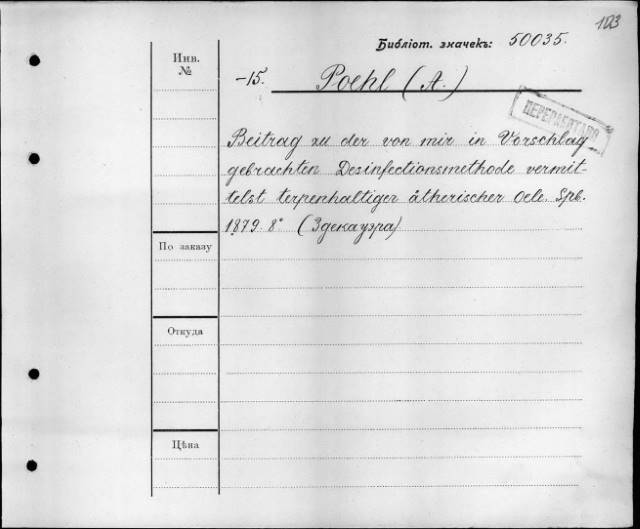 103
Библіот. значекъ: 50035.
Инв. №
-15. Poehl (A.)
ПЕРЕРАБОТАНО
Beitrag zu der von mir in Vorschlag
gebrachten Desinfectionsmethode vermit-
telst terpenhaltiger ätherischer Oele. Spb.
1879. 8° (Здекауэра)
По заказу
Откуда
Цѣна